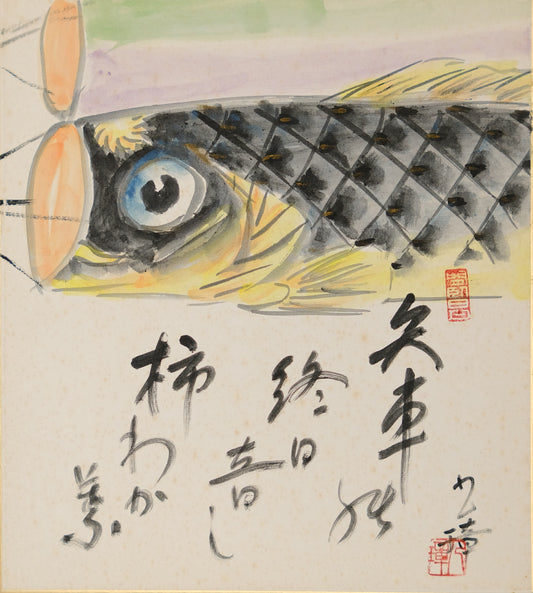 矢車能
終日音し
柿わか葉